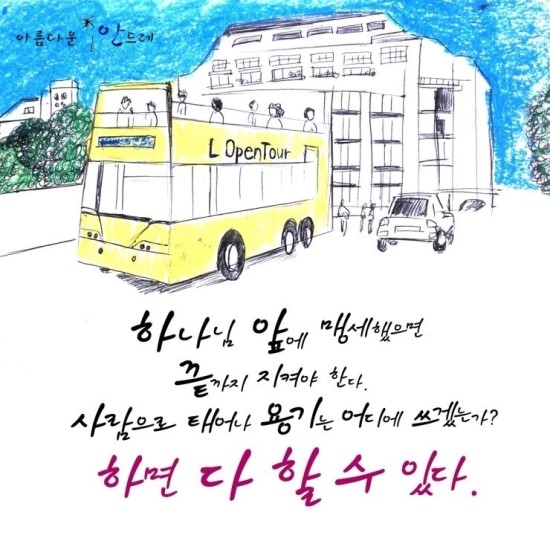 아름다운 안드레
L OpenTour
하나님 앞에 맹세했으면
끝까지 지켜야 한다.
사람으로 태어나 용기는 어디에 쓰겠는가?
하면 다 할 수 있다.